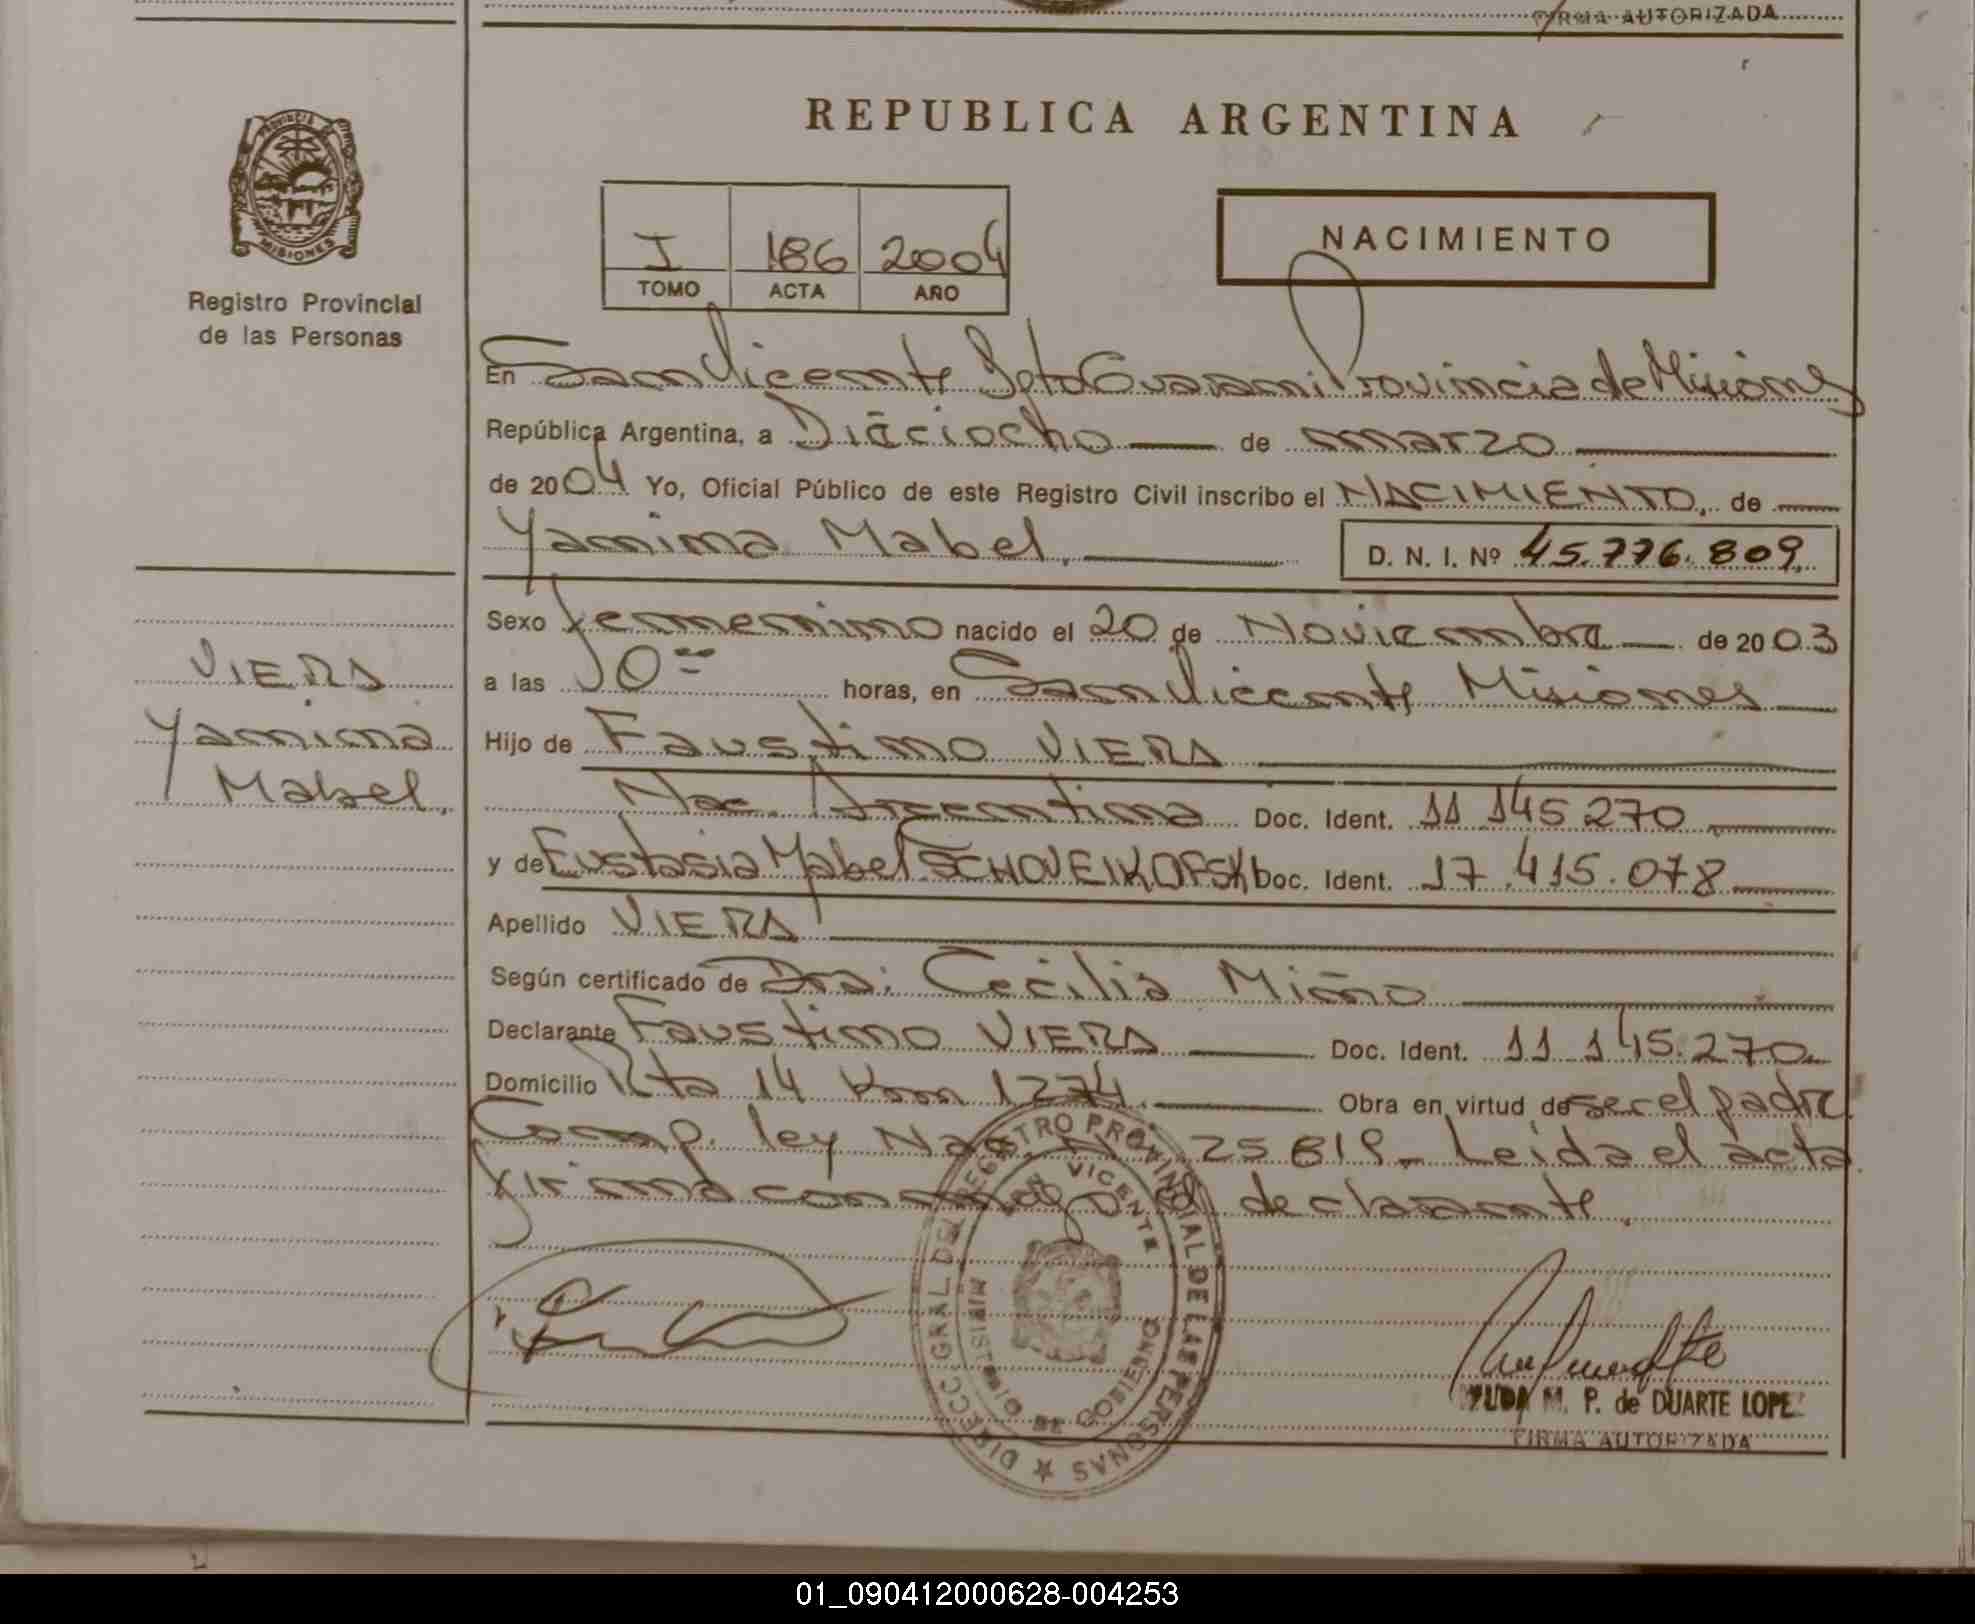 FIRMA AUTORIZADA
PROVINCIA DE
MISIONES
Registro Provincial
de las Personas
REPUBLICA ARGENTINA
I 186 2004
TOMO ACTA AÑO
NACIMIENTO
En San Vicente Dpto Guarani Provincia de Misiones
República Argentina, a Dieciocho de marzo
de 2004 Yo, Oficial Público de este Registro Civil inscribo el NACIMIENTO, de
Yamima Mabel, D. N. I. Nº 45.776.809,
Sexo femenino nacido el 20 de Noviembre de 2003
a las horas, en San Vicente Misiones
Hijo de Faustino VIERA
Nac. Argentina Doc. Ident. 11 145 270
y de Eustasia Mabel Doc. Ident. 17.415.078
Apellido VIERA
Según certificado de Dra. Cecilia Miño
Declarante Faustino VIERA Doc. Ident. 11 145.270
Domicilio Rta 14 Km 1274. Obra en virtud de ser el padre
Comp. ley Nac. 25 819 - Leida el acta
firma conmigo el declarante.
VIERA
Yamima
Mabel,
DIRECC. GRAL. DEL REGISTRO PROVINCIAL DE LAS PERSONAS
SAN VICENTE
MINISTERIO DE GOBIERNO
M. P. de DUARTE LOPE
FIRMA AUTORIZADA
01_090412000628-004253